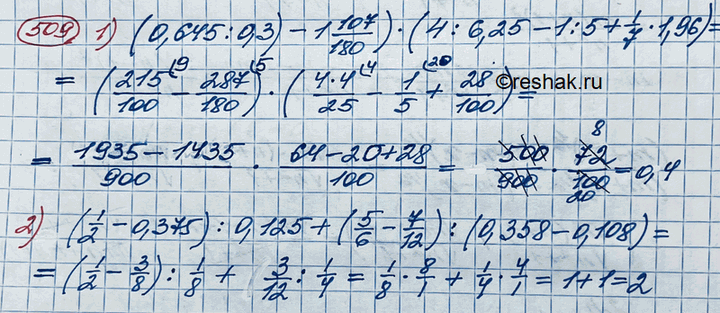 509. 1) (0,645 : 0,3) - 1 107/180) · (4 : 6,25 - 1 : 5 + 1/7 · 1,96) =
= (215/100 (9 - 287/180 (5) · (4·4/25 (4 - 1/5 (20 + 28/100) =
©reshak.ru
= 1935 - 1435/900 · 64 - 20 + 28/100 = 500/900 · 72/100 8 20 = 0,4
2) (1/2 - 0,375) : 0,125 + (5/6 - 7/12) : (0,358 - 0,108) =
= (1/2 - 3/8) : 1/8 + 3/12 : 1/4 = 1/8 · 8/1 + 1/4 · 4/1 = 1 + 1 = 2